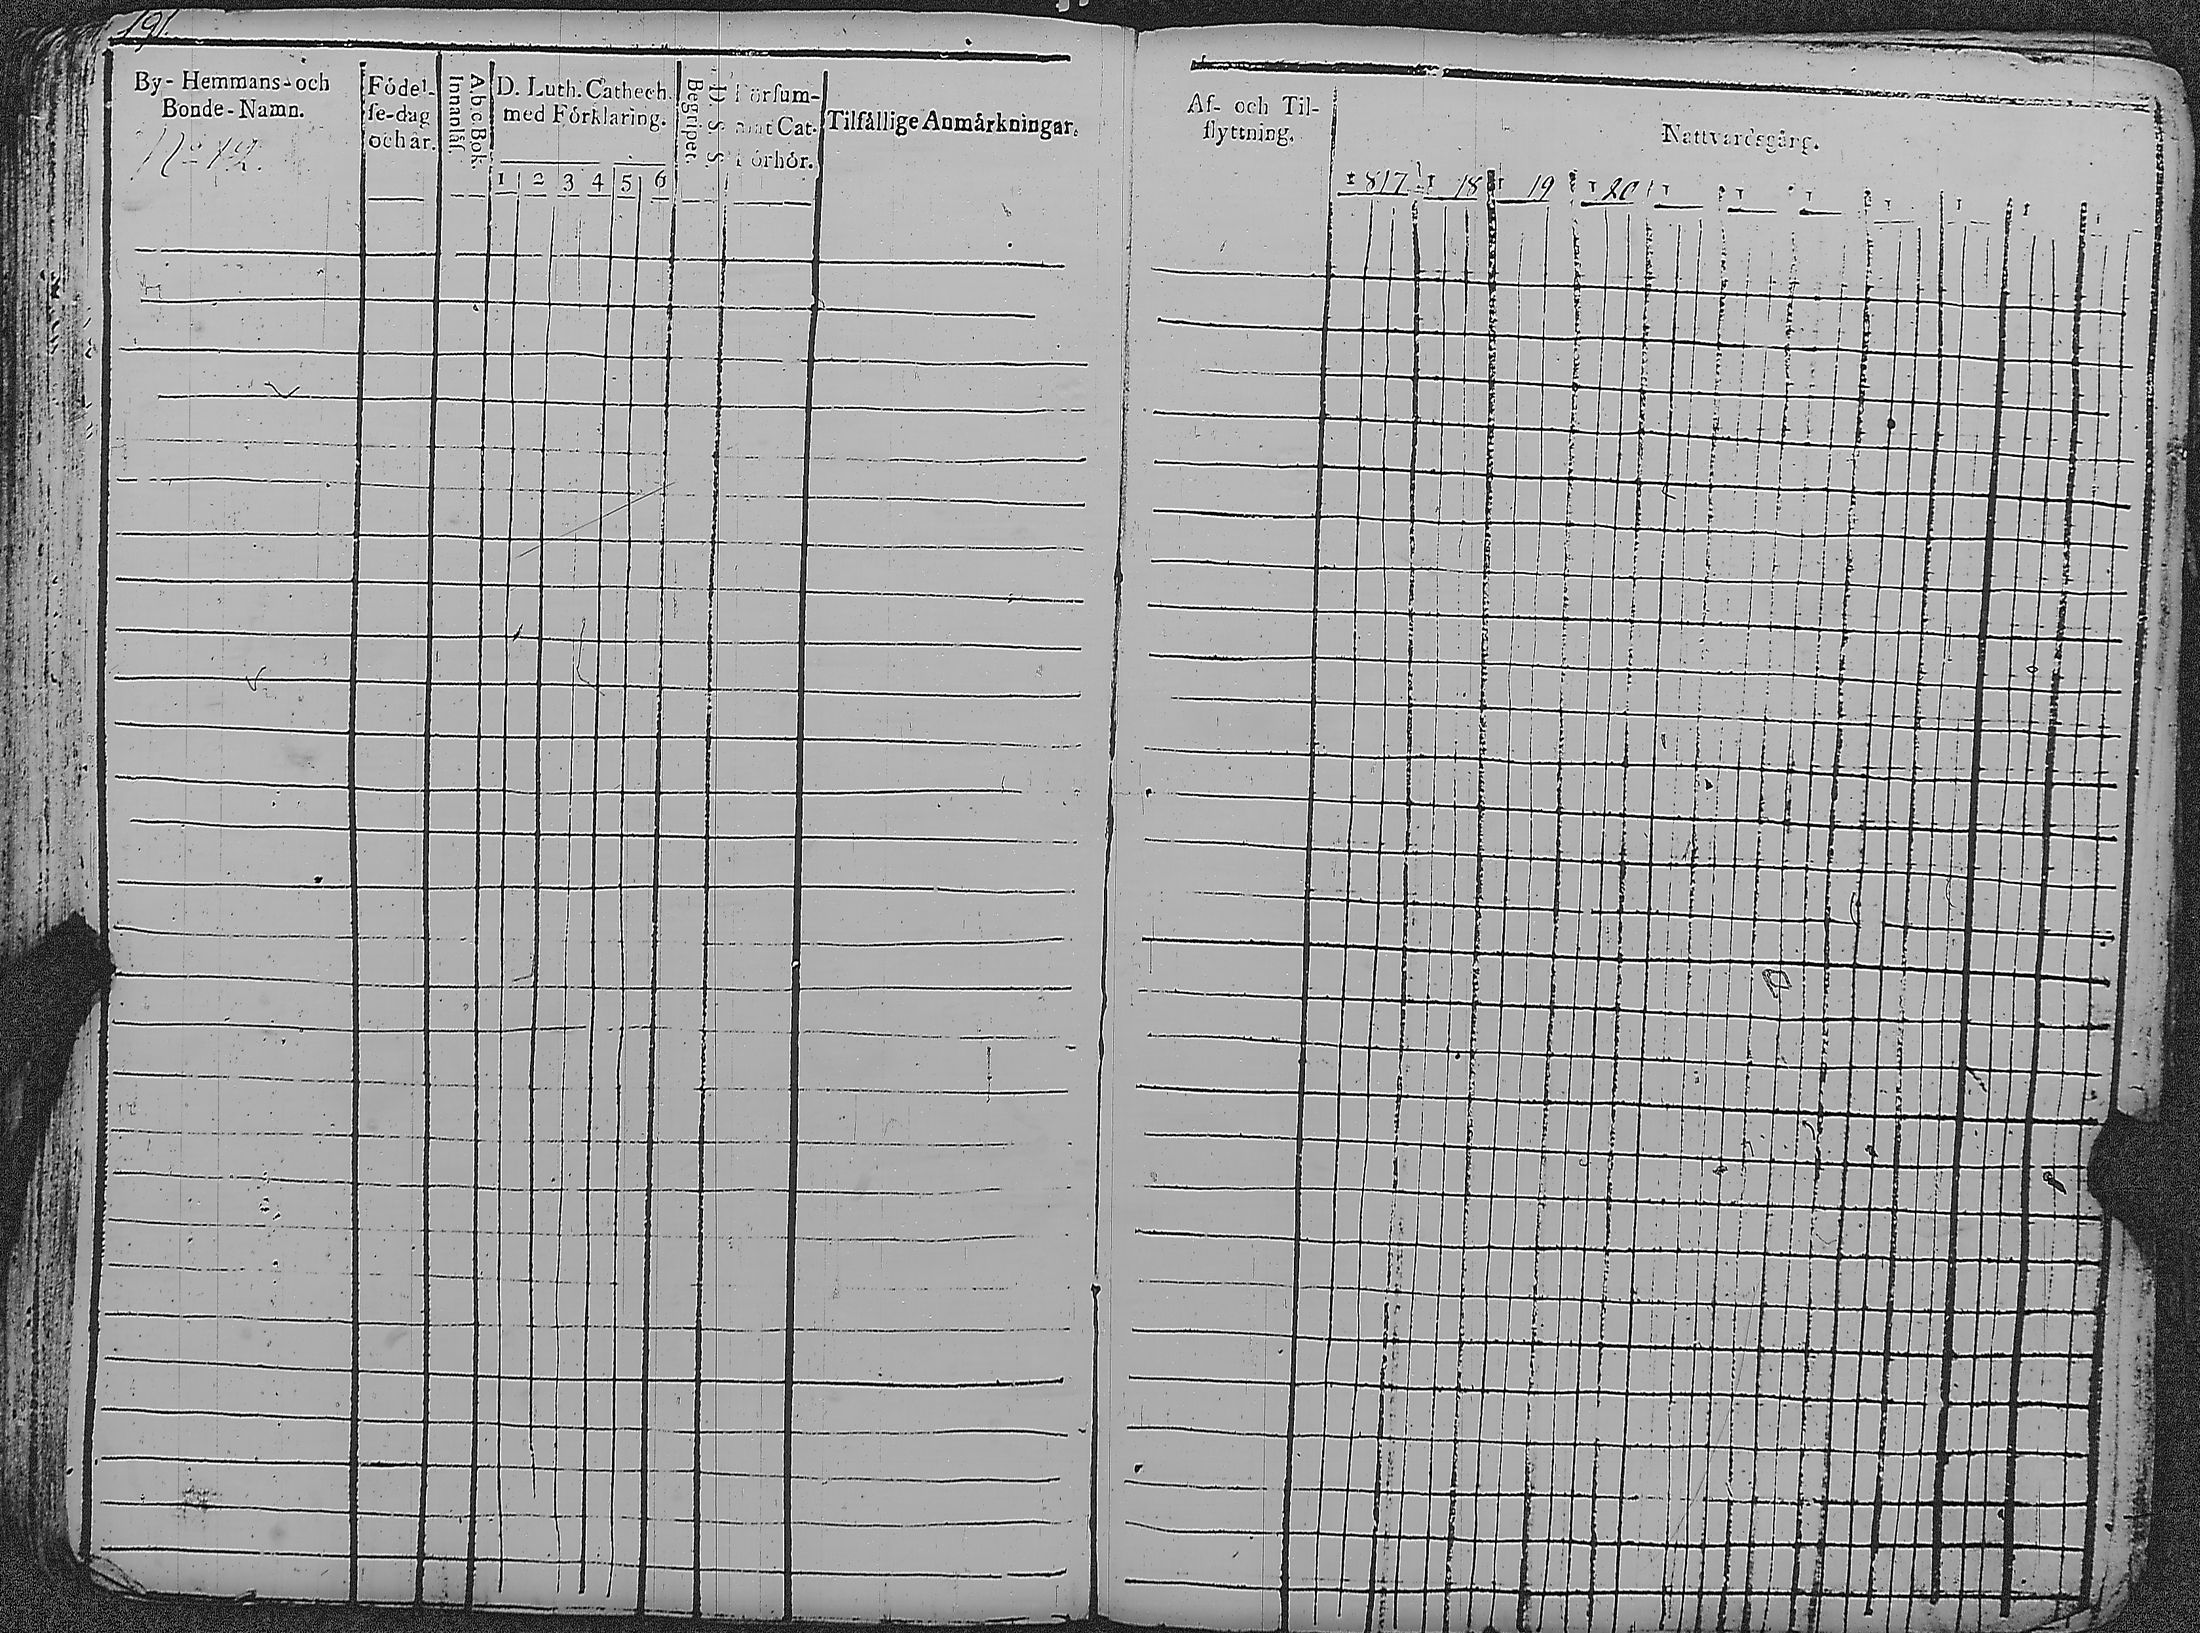 191.
By- Hemmans- och
Bonde-Namn.
No 12.
Födel-
se-dag
och år.
Abc Bok.
Innanläs.
D. Luth. Cathech.
med Förklaring.
1 2 3 4 5 6
Begripet.
D. S. S.
Försum-
mat Cat.
Förhör.
Tilfällige Anmärkningar.
Af- och Til-
flyttning.
Nattvardsgång.
1817 1 18 1 19 1 20 1 1 1 1 1 1 1